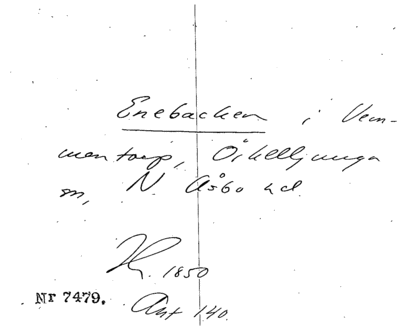 Enebacken i Vem-
mentorp, Örkelljunga
sn, N. Åsbo hd.
Hr. 1850
Nr 7479. Ant 140.